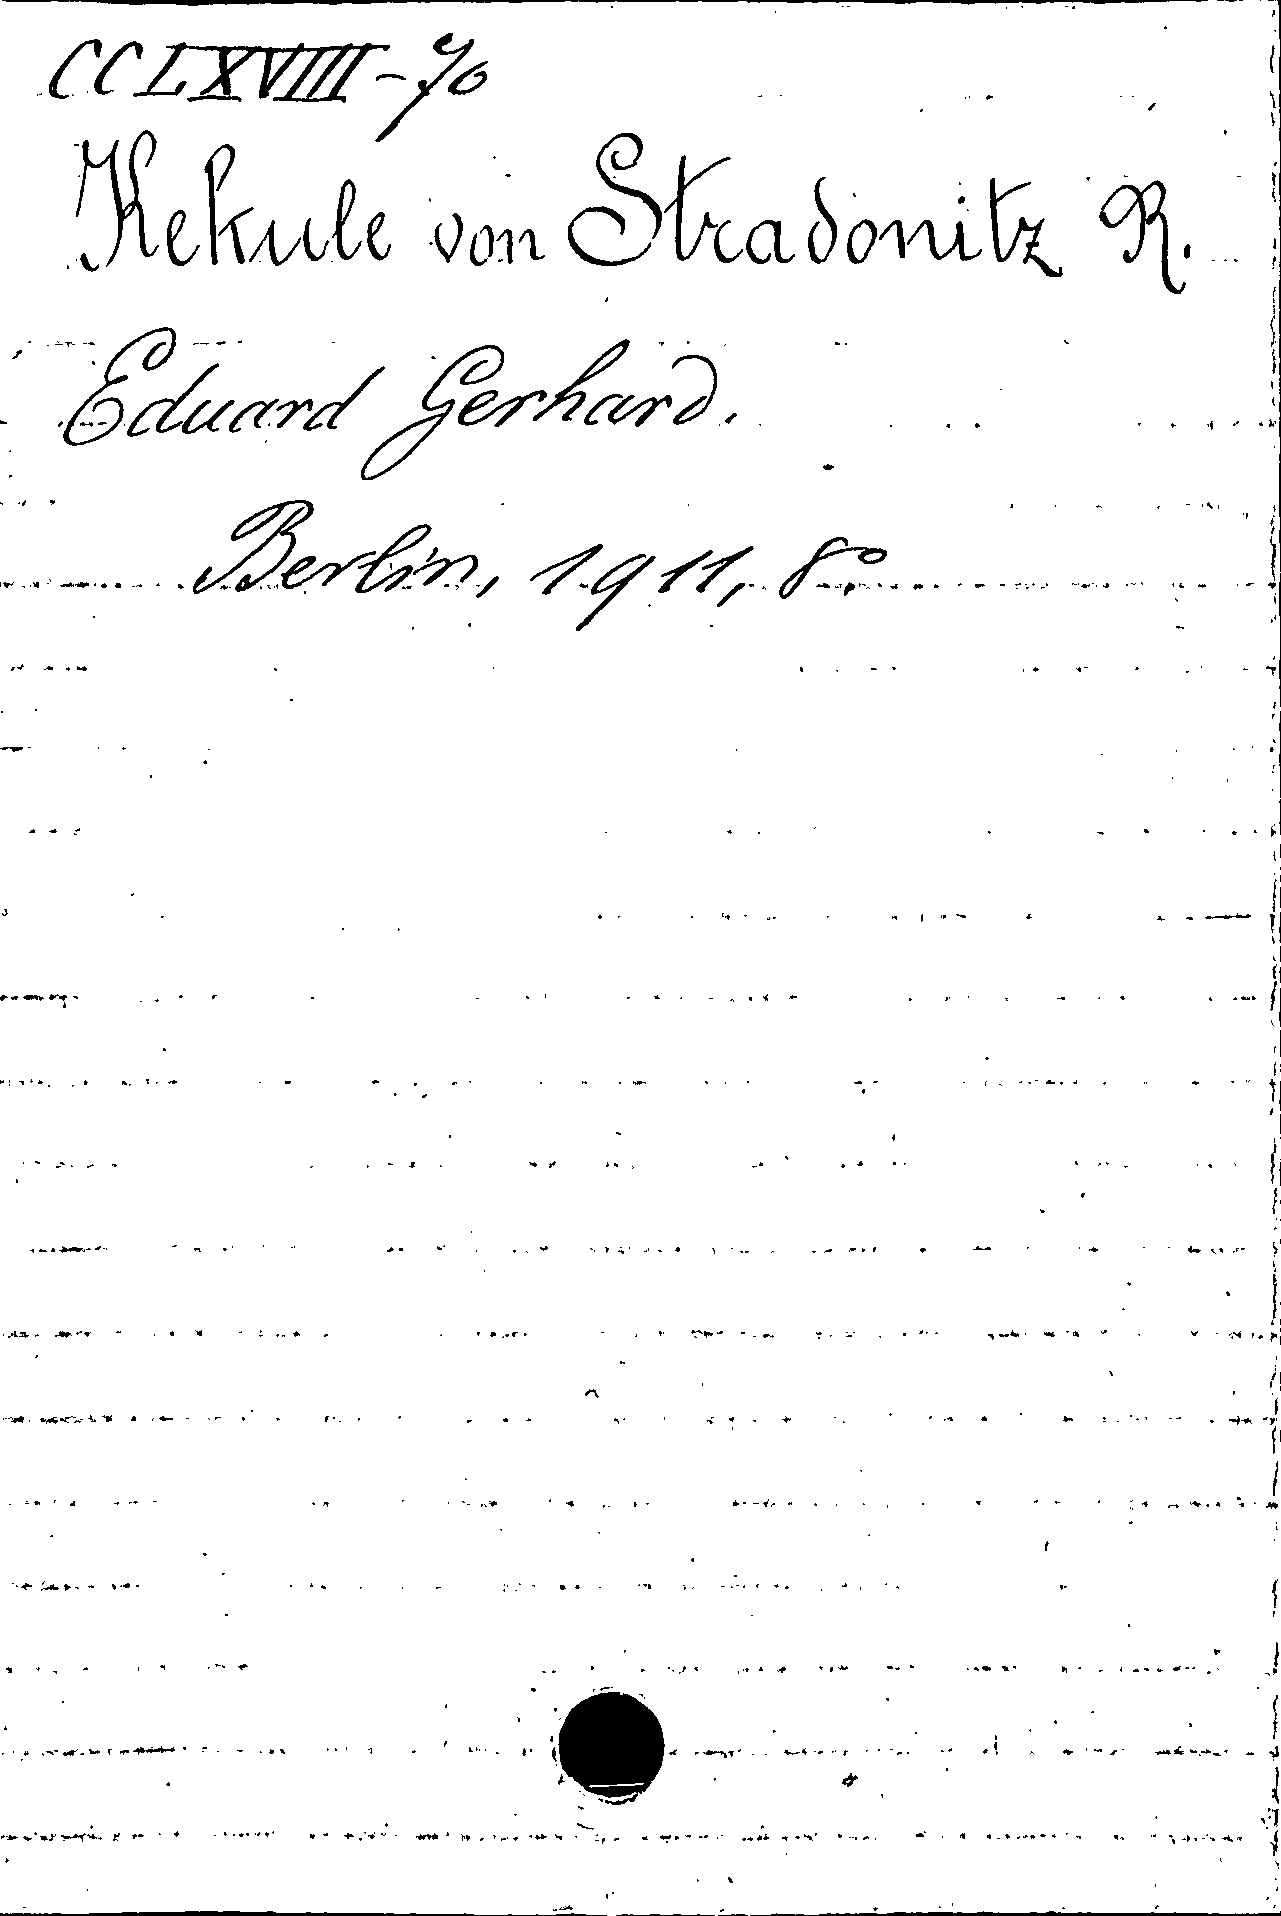 CCLXVIII-70
Kekule von Stradonitz R.
Eduard Gerhard.
Berlin, 1911, 8°